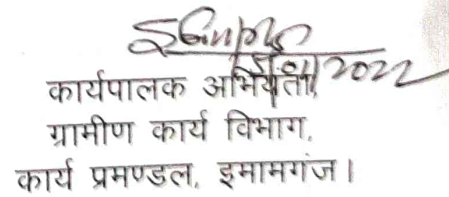 15.01/2022
कार्यपालक अभियंता,
ग्रामीण कार्य विभाग,
कार्य प्रमण्डल, इमामगंज।